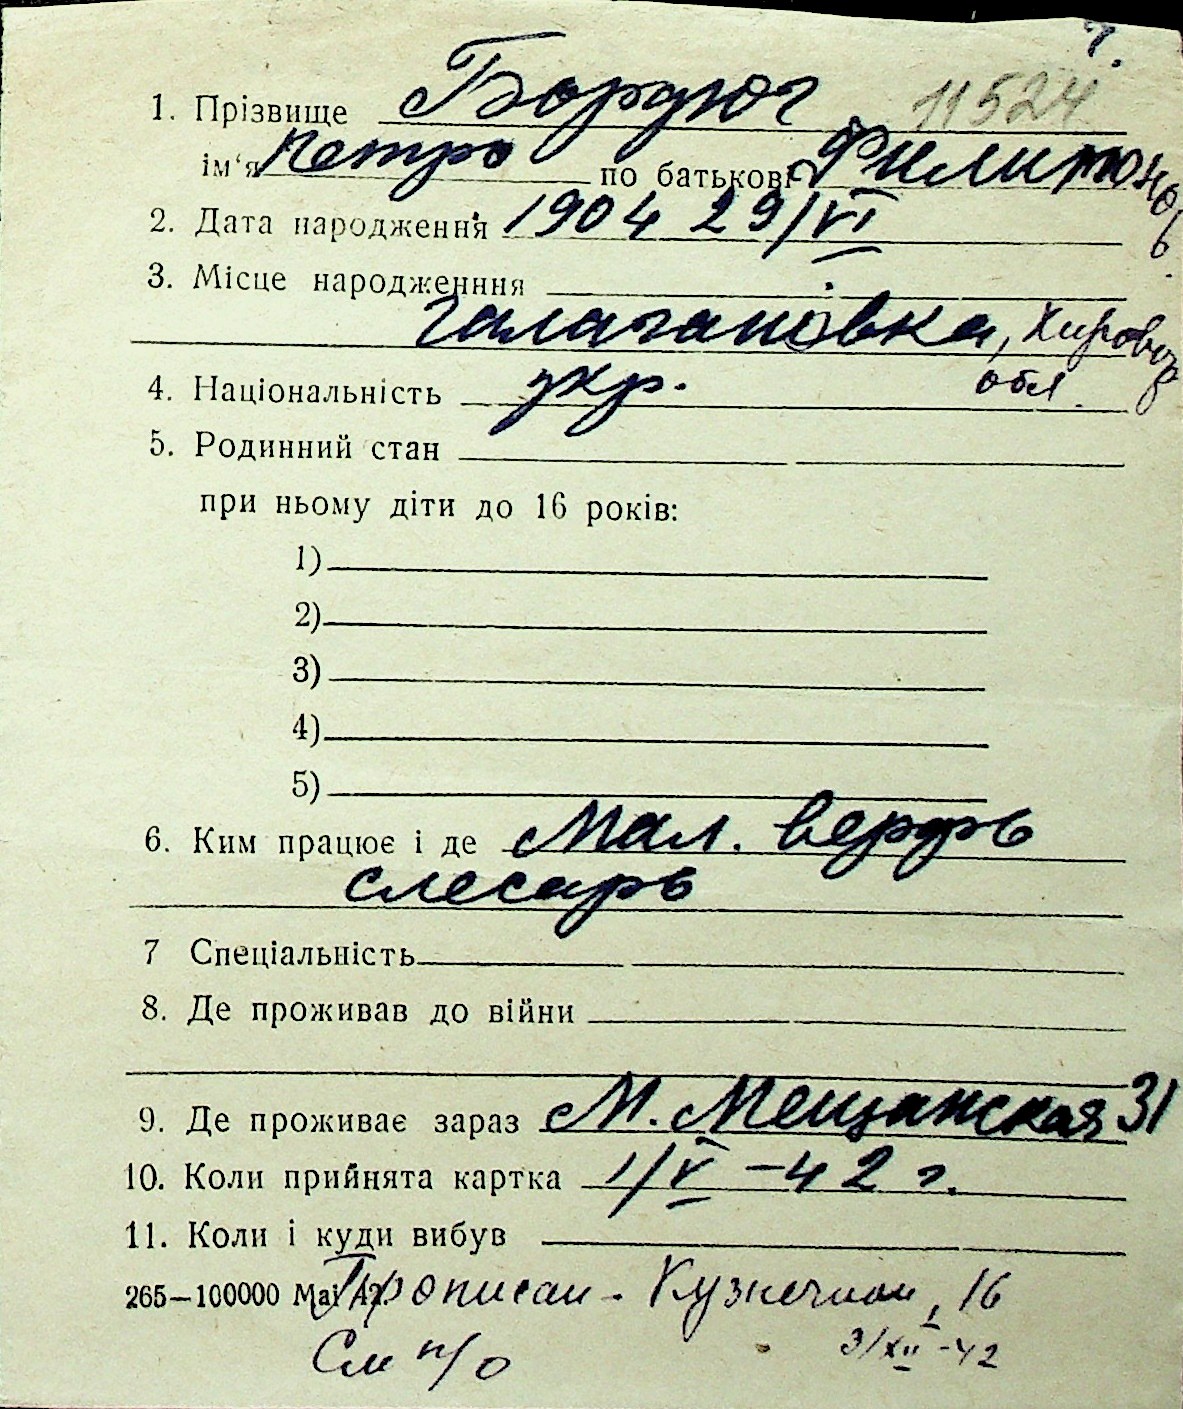 1. Прізвище Бордюг 11524
ім'я Петро по батькові Филимонов
2. Дата народження 1904 29/VI
3. Місце народженння
Галагановка, Кировогр
обл.
4. Національність укр.
5. Родинний стан
при ньому діти до 16 років:
1)
2)
3)
4)
5)
6. Ким працює і де Мал. верфь
слесарь
7 Спеціальність
8. Де проживав до війни
9. Де проживає зараз М. Мещанская 31
10. Коли прийнята картка 1/V - 42 г.
11. Коли і куди вибув
265—100000 Маі 42. Прописан - Кузнечная, 16
См п/о 3/XII - 42